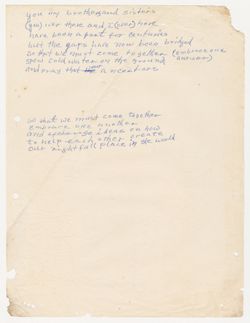 you my brothers and sisters
(you) over there and I (over) here
have been apart for centuries
but the gaps have now been bridged
so that we must come together (embrace one
cold water on the ground another)
and pray that
so that we must come together
embrace one another
and exchange ideas on how
to help each other create
our rightfull place in the world